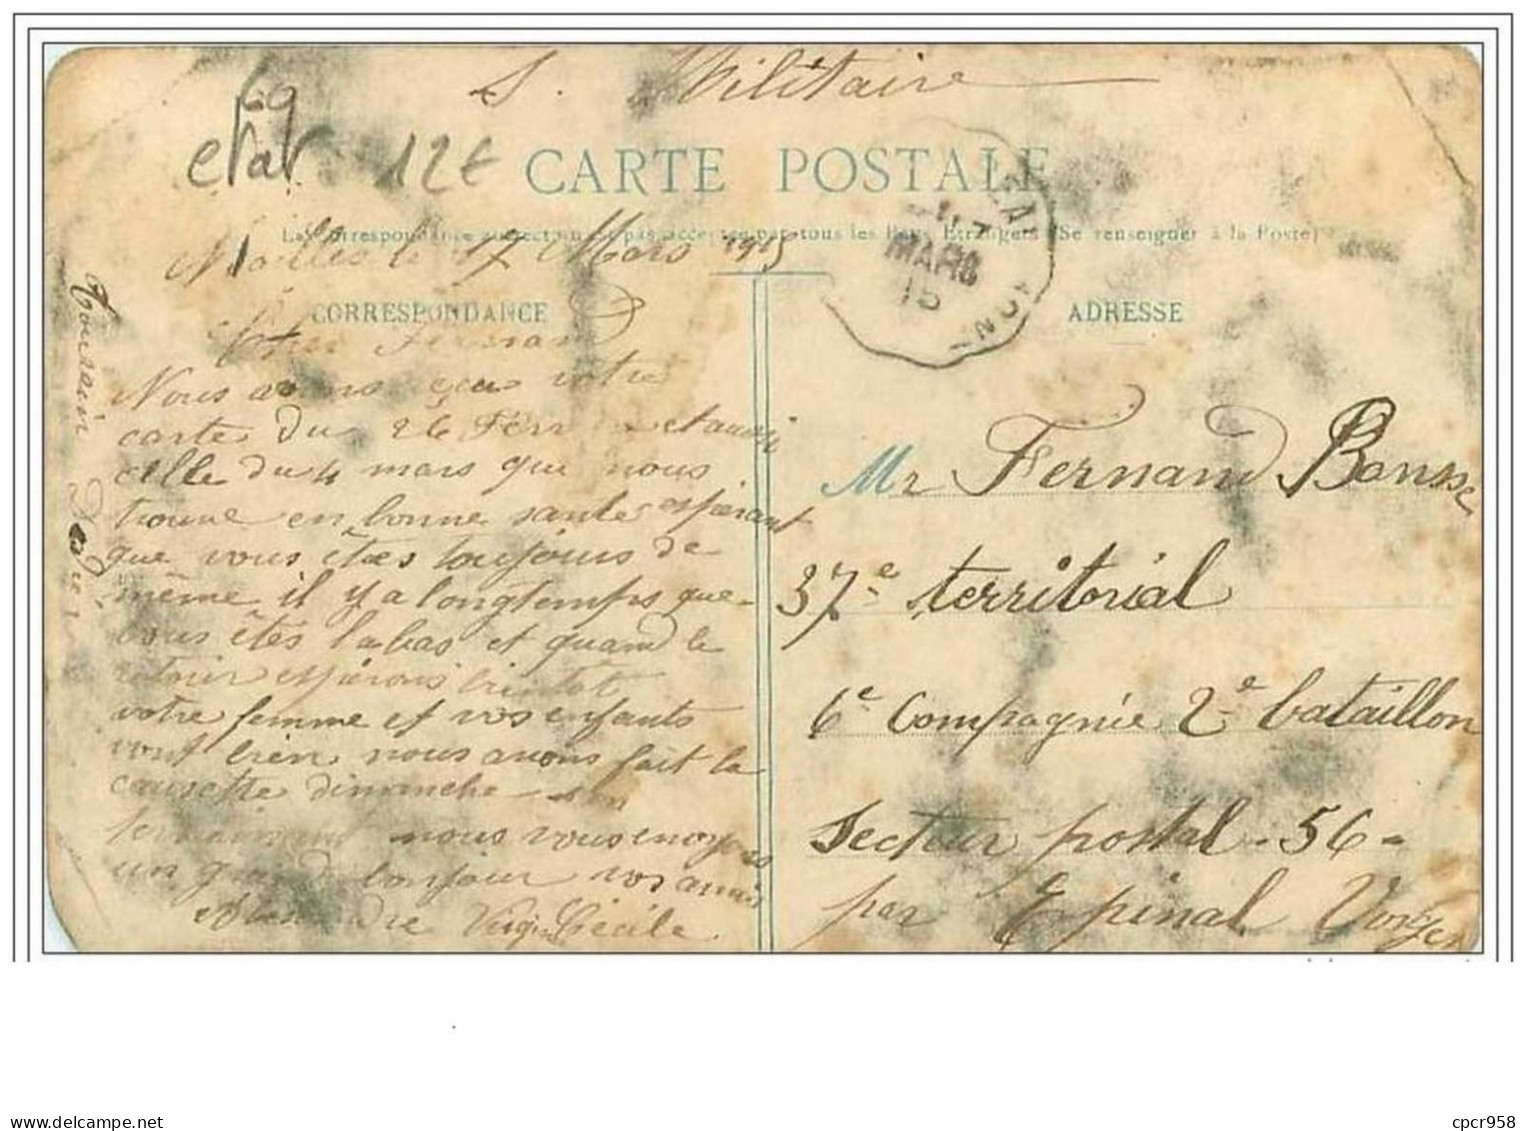 S. Militaire
69
etat 12€
CARTE POSTALE
La Correspondance au recto n'est pas acceptée par tous les Pays Étrangers (Se renseigner à la Poste)
le 17 Mars 1915
MARS
15
CORRESPONDANCE
ADRESSE
Cher Fernand
Nous avons reçu votre
carte du 26 Févr et aussi
celle du 4 mars que nous
trouve en bonne santé espérant
que vous êtes toujours de
même il y a longtemps que
vous êtes labas et quand le
retour espérons bientot
votre femme et vos enfants
vont bien nous avons fait la
causette dimanche
nous vous envoyons
un grand bonjour vos amis
Alexandre Virgin Cécile
Mr Fernand
37e territorial
6e Compagnie 2e bataillon
Secteur postal - 56 -
par Epinal Vosges
cpcr958